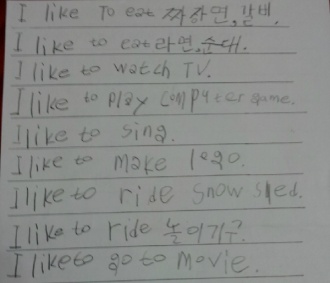 I like To eat 짜장면, 갈비.
I like to eat 라면, 순대.
I like to watch TV.
I like to play computer game.
I like to sing.
I like to make lego.
I like to ride snow sled.
I like to ride 놀이기구.
I like to go to movie.